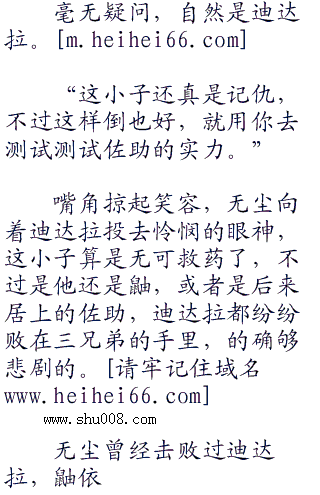 毫无疑问，自然是迪达
拉。[m.heihei66.com]
“这小子还真是记仇，
不过这样倒也好，就用你去
测试测试佐助的实力。”
嘴角掠起笑容，无尘向
着迪达拉投去怜悯的眼神，
这小子算是无可救药了，不
过是他还是鼬，或者是后来
居上的佐助，迪达拉都纷纷
败在三兄弟的手里，的确够
悲剧的。[请牢记住域名
www.heihei66.com]
www.shu008.com
无尘曾经击败过迪达
拉，鼬依